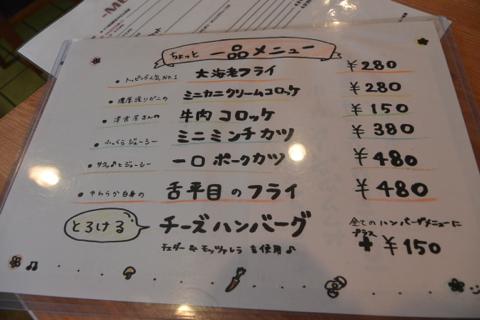 ちょっと 一品メニュー
トッピング人気No.1 大海老フライ ¥280
濃厚渡りガニの ミニカニクリームコロッケ ¥280
牛肉コロッケ ¥150
ふっくらジューシー ミニミンチカツ ¥380
サクッ♪とジューシー 一口ポークカツ ¥480
やわらか白身の 舌平目のフライ ¥480
とろける チーズハンバーグ 全てのハンバーグメニューに
プラス
+¥150
チェダー&モッツァレラを使用♪